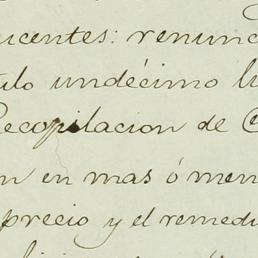 ucentes: renunc
tulo undécimo li
Recopilacion de C
n en mas ó men
precio y el remedi